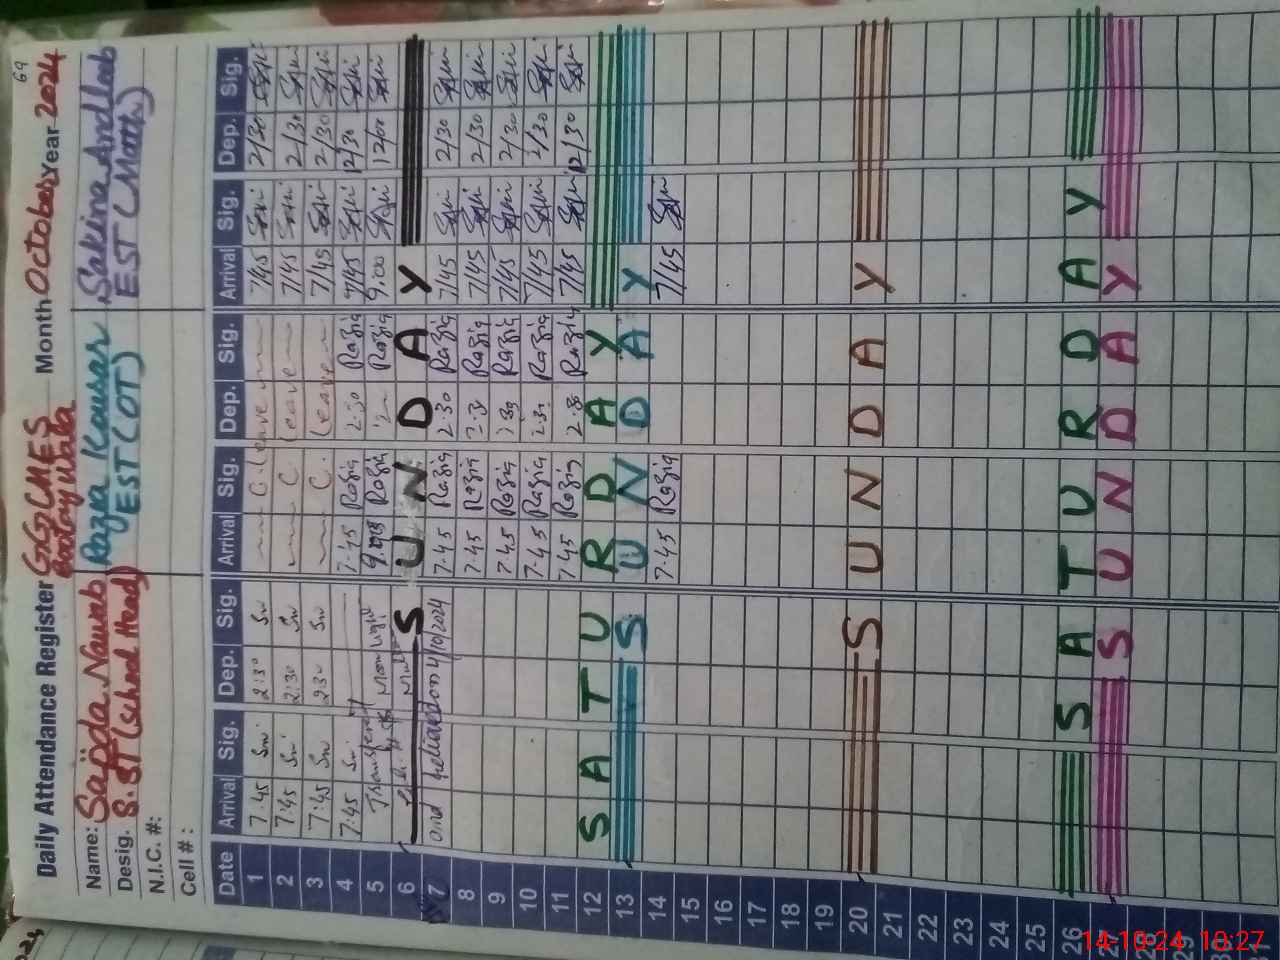 69
Daily Attendance Register GGCMES Month October Year 2024
Name: Sajida Nawab Razia Kousar Sakina Andleeb
Desig. S.ST (School Head) EST (OT) EST (Math)
N.I.C. #:
Cell # :
Date Arrival Sig. Dep. Sig. Arrival Sig. Dep. Sig. Arrival Sig. Dep. Sig.
1 7:45 Sn 2:30 Sn C. leave 7/45 2/30
2 7:45 Sn 2:30 Sn C leave 7/45 2/30
3 7:45 Sn 2:30 Sn C. leave 7/45 2/30
4 7:45 Sn 7.45 Razia 2.30 Razia 7/45 12/30
5 Razia Razia 9.00 12/00
6 SUNDAY
7 and 4/10/2024 7.45 Razia 2.30 Razia 7/45 2/30
8 7.45 Razia 2.30 Razia 7/45 2/30
9 7.45 Razia 2.30 Razia 7/45 2/30
10 7.45 Razia 2.30 Razia 7/45 2/30
11 7.45 Razia Razia 7/45 12/30
12 SATURDAY
13 SUNDAY
14 7.45 Razia 7/45
15
16
17
18
19
20 SUNDAY
21
22
23
24
25
26 SATURDAY
27 SUNDAY
28
29
30
31
14-10-24 10:27